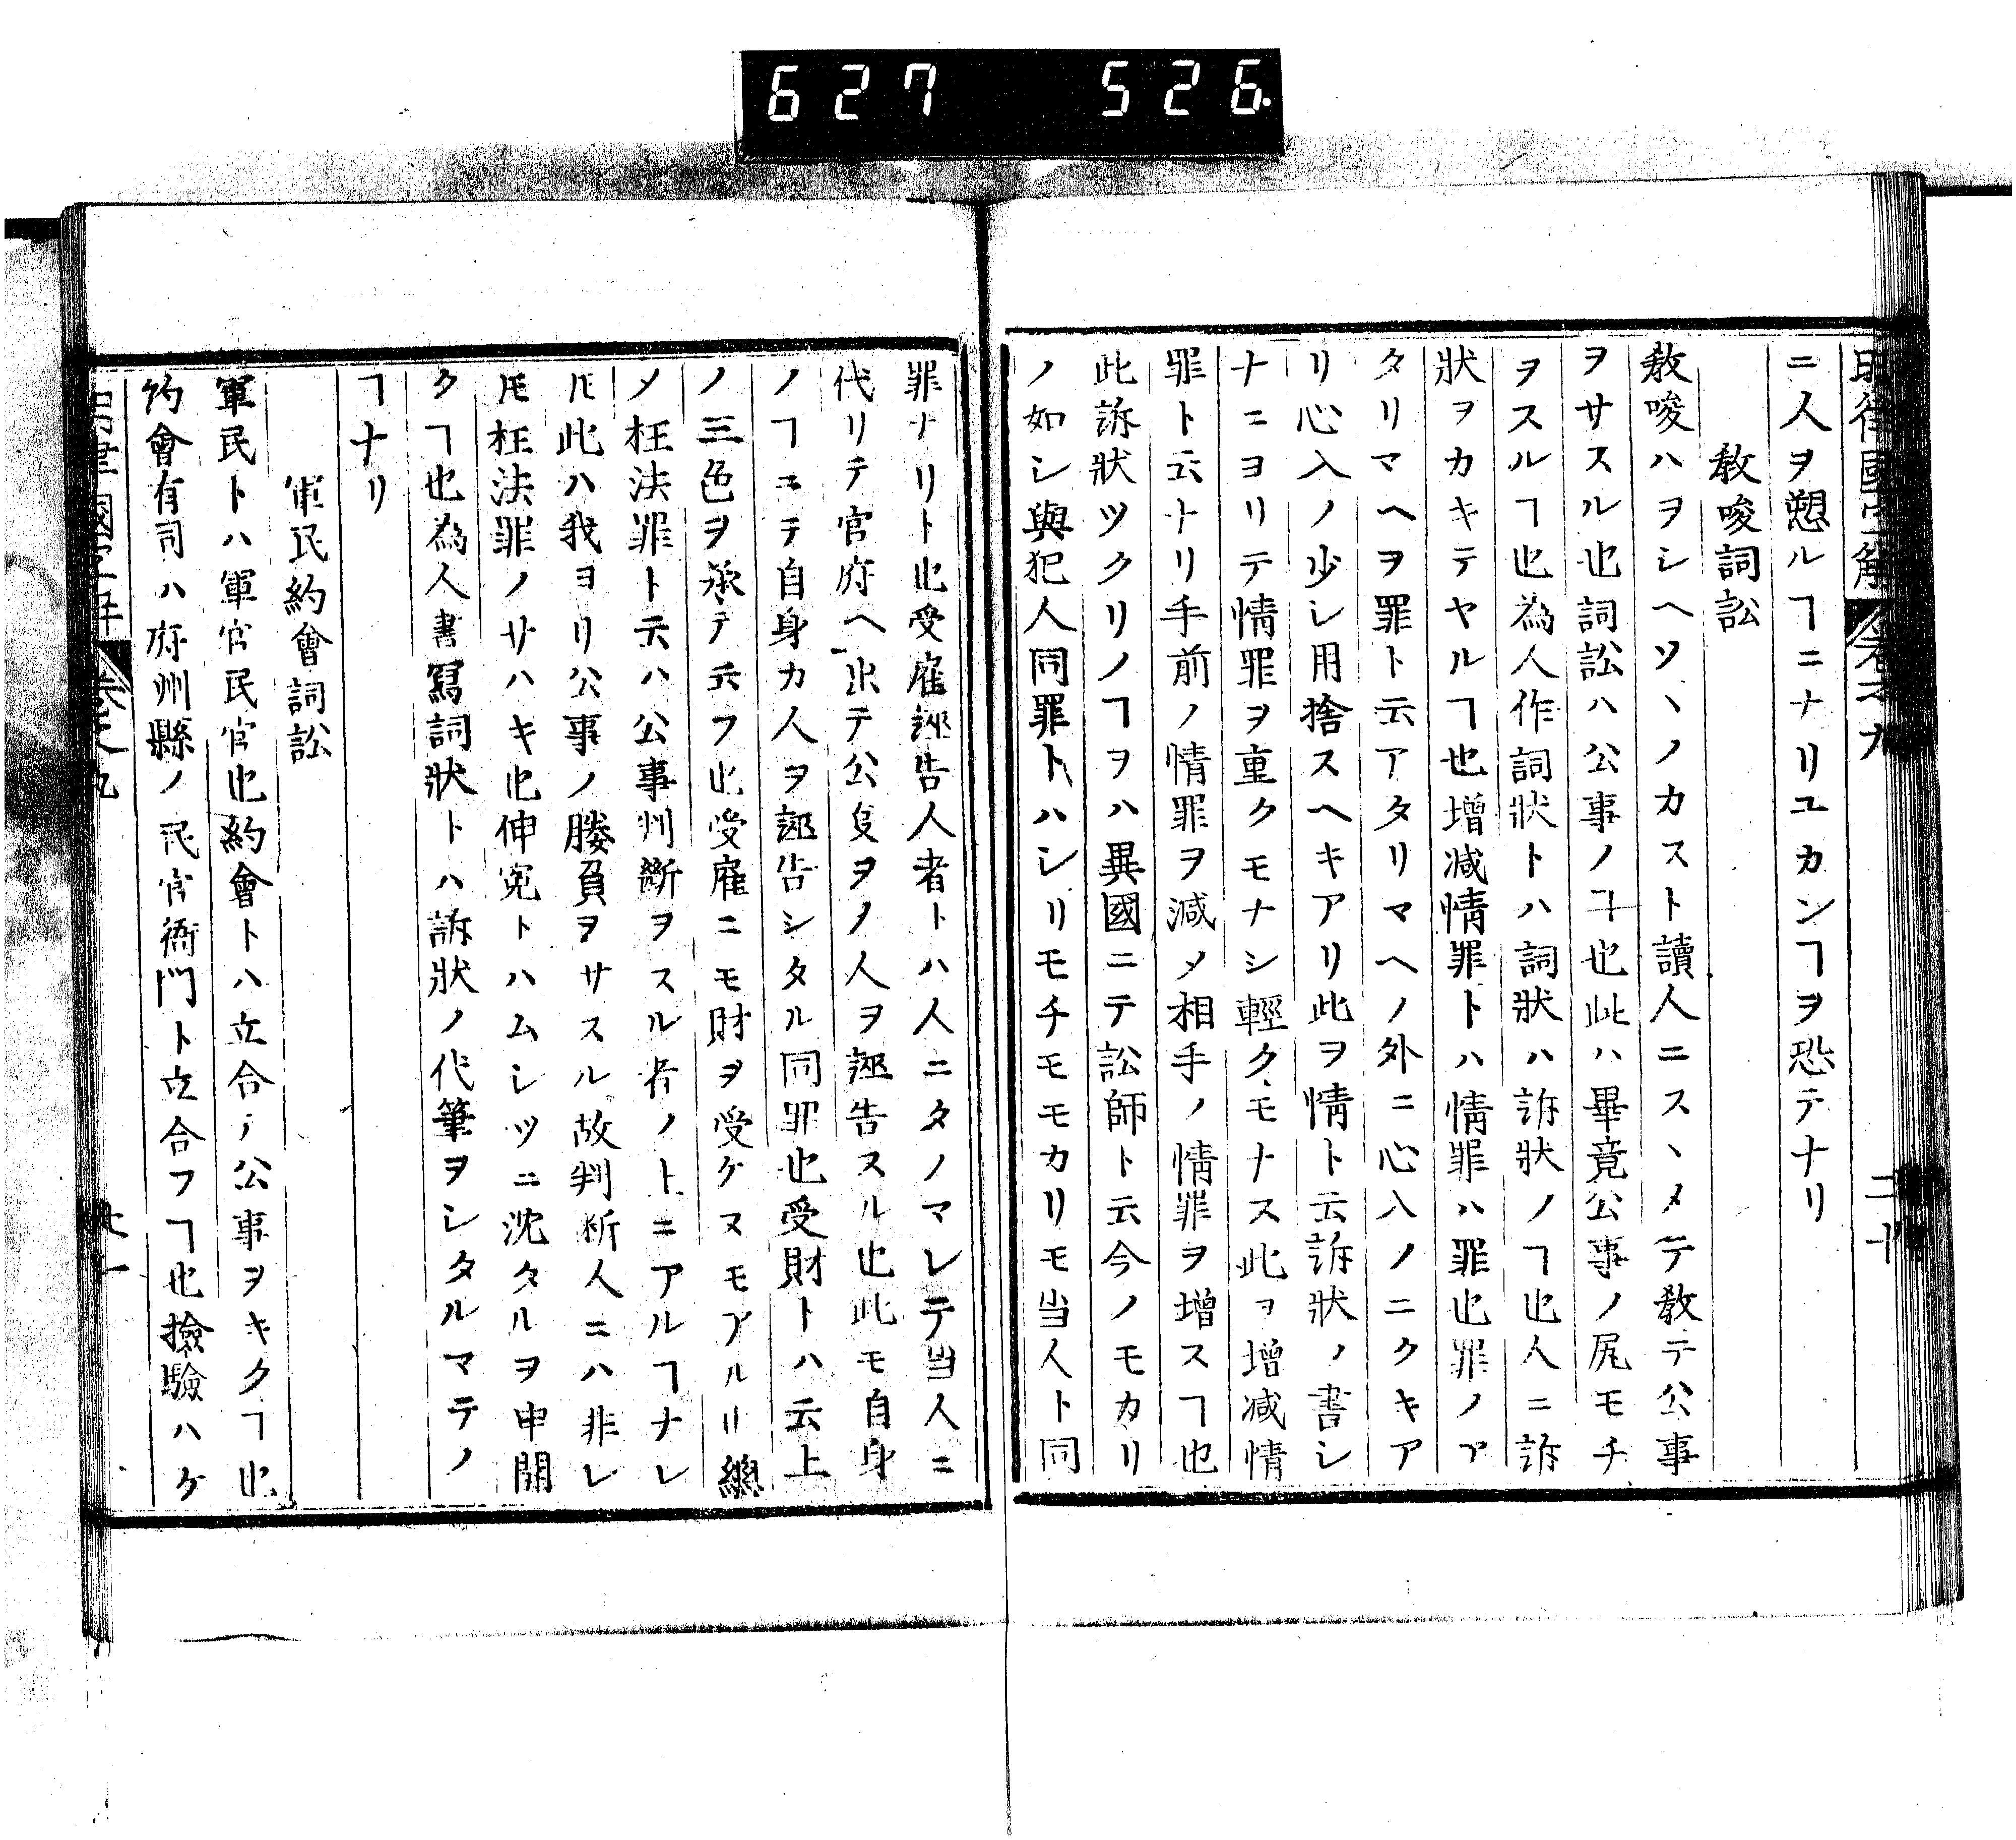 627 526
明律國字解 卷之九 二十
ニ人ヲ愬ルヿニナリユカンヿヲ恐テナリ
教唆詞訟
教唆ハヲシヘソヽノカスト讀人ニスヽメテ教テ公事
ヲサスル也詞訟ハ公事ノヿ也此ハ畢竟公事ノ尻モチ
ヲスルヿ也為人作詞狀トハ詞狀ハ訴狀ノヿ也人ニ訴
狀ヲカキテヤルヿ也增减情罪トハ情罪ハ罪也罪ノア
タリマヘヲ罪ト云アタリマヘノ外ニ心入ノニクキア
リ心入ノ少シ用捨スヘキアリ此ヲ情ト云訴狀ノ書シ
ナニヨリテ情罪ヲ重クモナシ輕クモナス此ヲ增减情
罪ト云ナリ手前ノ情罪ヲ减メ相手ノ情罪ヲ增スヿ也
此訴狀ツクリノヿヲハ異國ニテ訟師ト云今ノモカリ
ノ如シ與犯人同罪トハシリモチモモカリモ当人ト同
罪ナリト也受雇誣告人者トハ人ニタノマレテ当人ニ
代リテ官府ヘ出テ公叓ヲノ人ヲ誣告スル也此モ自身
ノヿニテ自身カ人ヲ誣告シタル同罪也受財トハ云上
ノ三色ヲ承テ云フ也受雇ニモ財ヲ受ケヌモアル故總
メ枉法罪ト云ハ公事判斷ヲスル者ノトニアルヿナレ
𪜈此ハ我ヨリ公事ノ勝負ヲサスル故判断人ニハ非レ
𪜈枉法罪ノサハキ也伸冤トハムシツニ沈タルヲ申開
クヿ也為人書寫詞狀トハ訴狀ノ代筆ヲシタルマテノ
ヿナリ
軍民約會詞訟
軍民トハ軍官民官也約會トハ立合テ公事ヲキクヿ也
約會有司ハ府州縣ノ民官衙門ト立合フヿ也撿驗ハケ
明律國字解 卷之九 廿一